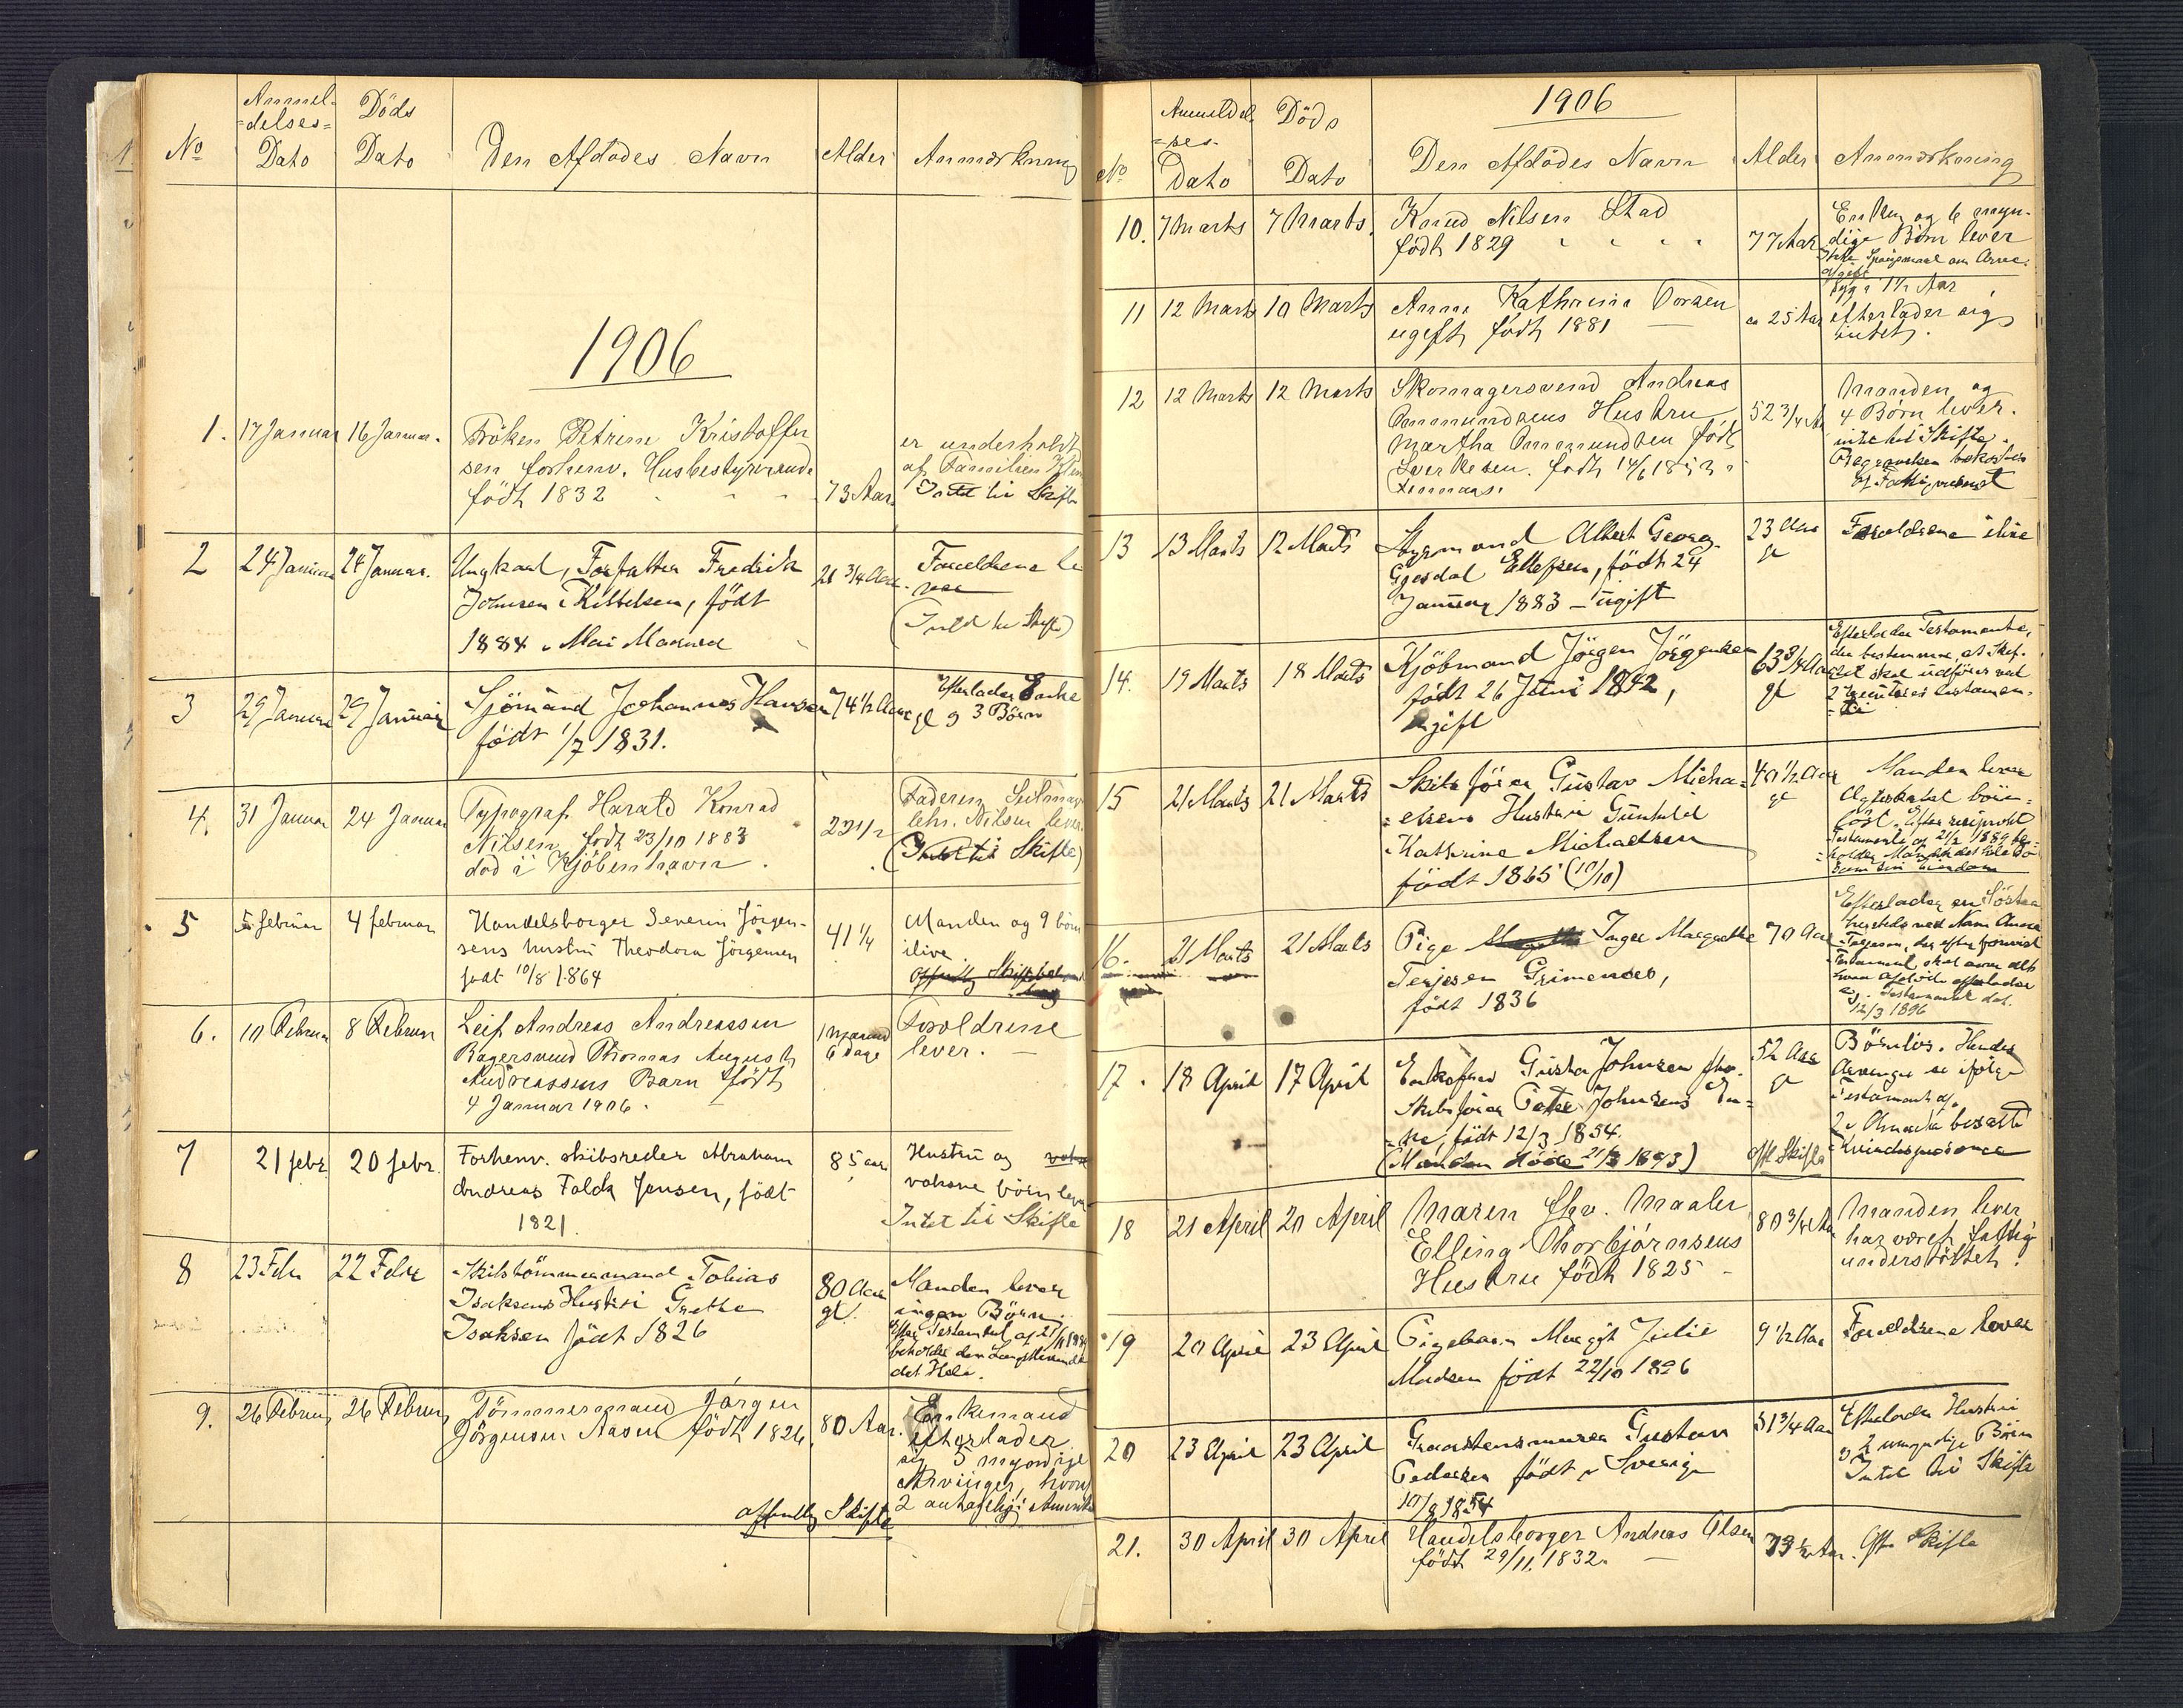 Anmel-
=delses=
Döds
No
Dato
Dato
Den Afdödes Navn
Alder
Anmærkning
1906
1.
17 Januar
16 Januar.
Fröken Petrine Kristoffer
sen forhenv. Husbestyrerinde
født 1832
73 Aar.
er underholdt
af Familien
Intet til Skifte
2
24 Januar
24 Januar.
Ungkarl, Forfatter Fredrik
Johnsen Kittelsen, født
1884 i Mai Maaned
21 3/4 Aar.
Forældrene le
ver
(Intet til Skifte)
3
29 Januar
29 Januar
Sjömand Johannes Hansen
født 1/7 1831.
74 1/2 Aar
gl
Efterlader Enke
og 3 Börn
4.
31 Januar
24 Januar
Typograf Harald Konrad
Nilsen født 23/10 1883
död i Kjöbenhavn.
22 1/2
Faderen Seilmag
Nilsen lever.
(Intet til Skifte)
5
5 februar
4 februar
Handelsborger Severin Jörgen-
sens hustru Theodora Jörgensen
født 10/8 1864
41 1/4
Manden og 9 börn
ilive.
6.
10 Februar
8 Februar
Leif Andreas Andreassen
Bagersvend Thomas August
Andreassens Barn født
4 Januar 1906.
1 Maaned
6 dage
Forældrene
lever.
7
21 febr.
20 febr.
Forhenv. skibsreder Abraham
Andreas Falck Jensen, født
1821
85 aar
Hustru og
voksne börn lever
Intet til Skifte
8
23 Febr
22 Febr
Skibstömmermand Tobias
Isaksens Hustru Grethe
Isaksen født 1826
80 Aar
gl.
Manden lever
ingen Börn.
Efter Testament af
beholder den Længstlevende
det Hele.
9.
26 Februar
26 Februar
Tömmermand Jörgen
Jörgensen Aasen født 1826
80 Aar.
Enkemand
efterlader
sig 5 myndige
Arvinger, hvoraf
2 antagelig i Amerika
offentlig Skifte
1906
Anmeldel
=ses-
Döds
No
Dato
Dato
Den Afdödes Navn
Alder
Anmærkning
10.
7 Marts
7 Marts.
Knud Nilsen Stad
født 1829
77 Aar
Enken og 6 myn-
dige Börn lever
Ikke Spörgsmaal om Arve-
afgift
11
12 Marts
10 Marts
Anne Kathrine Torsen
ugift født 1881
ca 25 Aar
syg i 1 1/2 Aar
efterlader sig
intet.
12
12 Marts
12 Marts
Skomagersvend Andreas
Ommundsens Hustru
Martha Ommundsen født
Sverkesen. født 14/6 1853
52 3/4 Aar
Manden og
4 Börn lever.
intet til Skifte.
Begravelsen bekostes
af Fattigvæsenet
13
13 Marts
12 Marts
Styrmand Albert Georg
Gjesdal Ellefsen, født 24
Januar 1883 – ugift
23 Aar
gl
Forældrene ilive
14.
19 Marts
18 Marts
Kjöbmand Jörgen Jörgensen
født 26 Juni 1842,
ugift
63 3/4 Aar
gl
Efterlader Testamente,
der bestemmer, at Skif-
tet skal udföres ved
2
15
21 Marts
21 Marts
Skibsförer Gustav Micha=
=elsens Hustru Gunhild
Kathrine Michaelsen
født 1865 (10/10)
40 1/2 Aar
gl
Manden lever
Ægteskabet börn=
löst. Efter reciprokt
Testamente af 21/2 1889 be-
holder Manden det hele Bo
som sin Eiendom
16.
21 Marts
21 Marts
Pige Inger Margrethe
Terjesen Grimenæs,
født 1836
70 Aar
Efterlader en Söster
ved Navn Anna
Terjesen, der efter
Testament skal arve alt
hvad Afdöde efterlader
sig. Testamentet dat.
12/3 1896
17.
18 April
17 April
Enkefru Gusta Johnsen fhv.
Skibsförer Peter Johnsens En=
=ke, født 12/3 1854.
(Manden döde 21/3 1893)
52 Aar
gl
off Skifte
Börnlös. Hendes
Arvinger se ifölge
Testament af
2
Kvindespersoner
18
21 April
20 April
Maren fhv. Maaler
Elling Thorbjörnsens
Hustru født 1825
80 3/4 Aar
Manden lever
har været fattig
understöttet.
19
20 April
23 April
Pigebarn Margit Julie
Madsen født 22/10 1896
9 1/2 Aar
Forældrene lever
20
23 April
23 April
Graastensmurer Gustav
Pedersen født i Sverige
10/8 1854
51 3/4 Aar
Efterlader Hustru
og 2 umyndige Börn
Intet til Skifte
21.
30 April
30 April
Handelsborger Andreas Olsen
født 29/11 1832.
73 1/2 Aar.
Off. Skifte